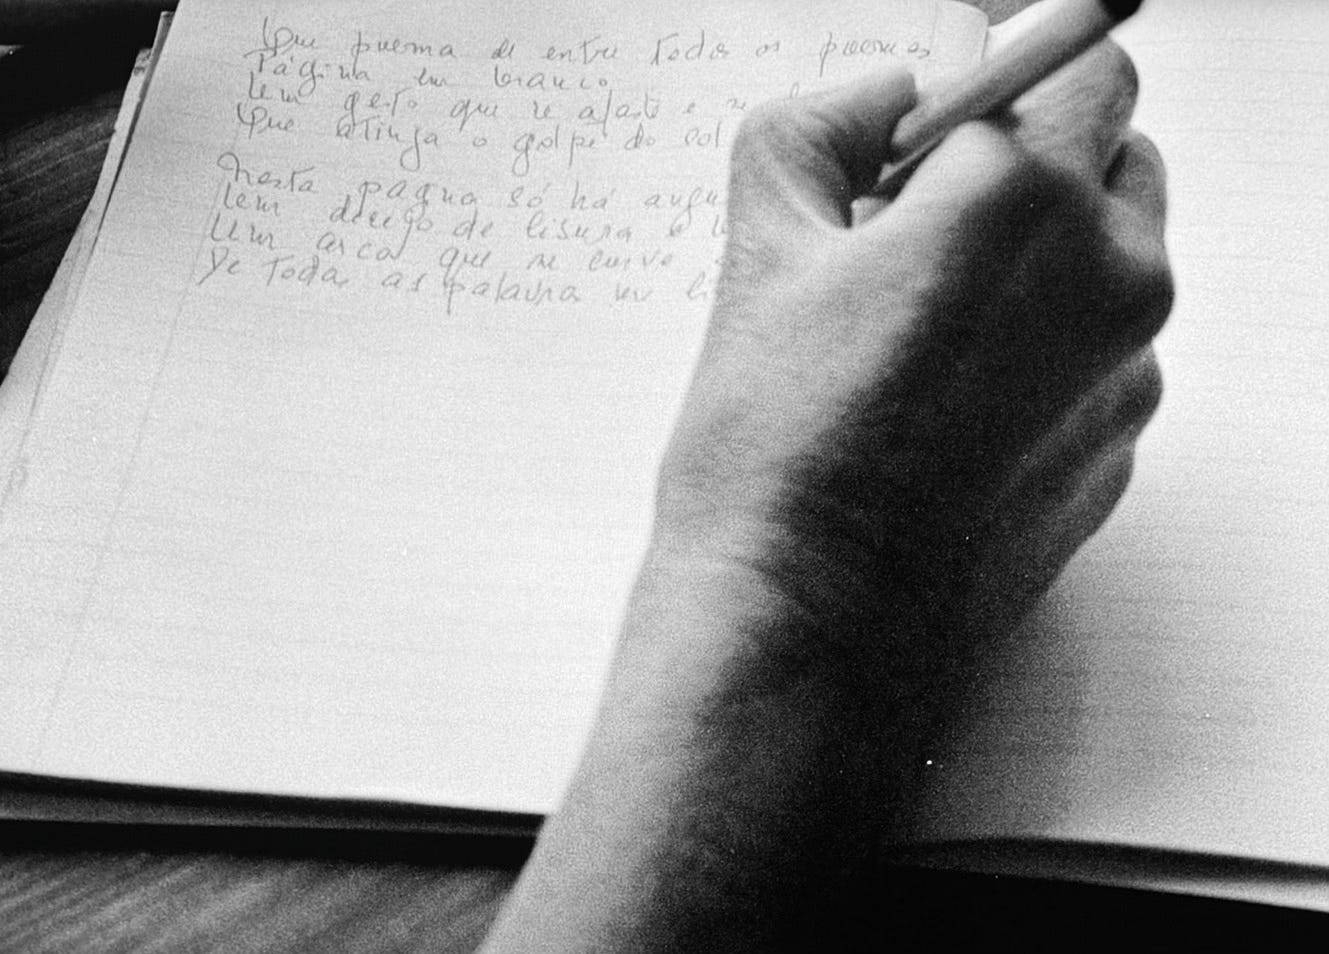 Que poema de entre todos os poemas
Página em branco
Um gesto que se afaste e se
Que atinja o golpe do sol
Nesta página só há angu
Um desejo de lisura e
Um arco que se curve
De todas as palavras